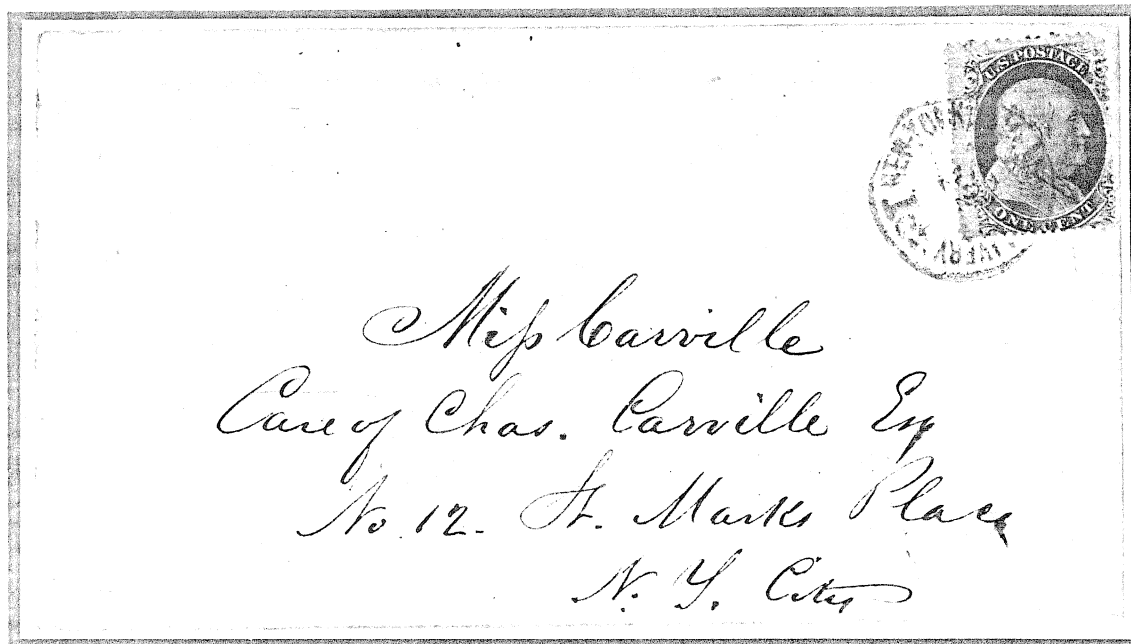 U.S. POSTAGE
NEW-YORK
ONE CENT
Miss Carville
Care of Chas. Carville Esq
No. 12. St. Marks Place
N. Y. City